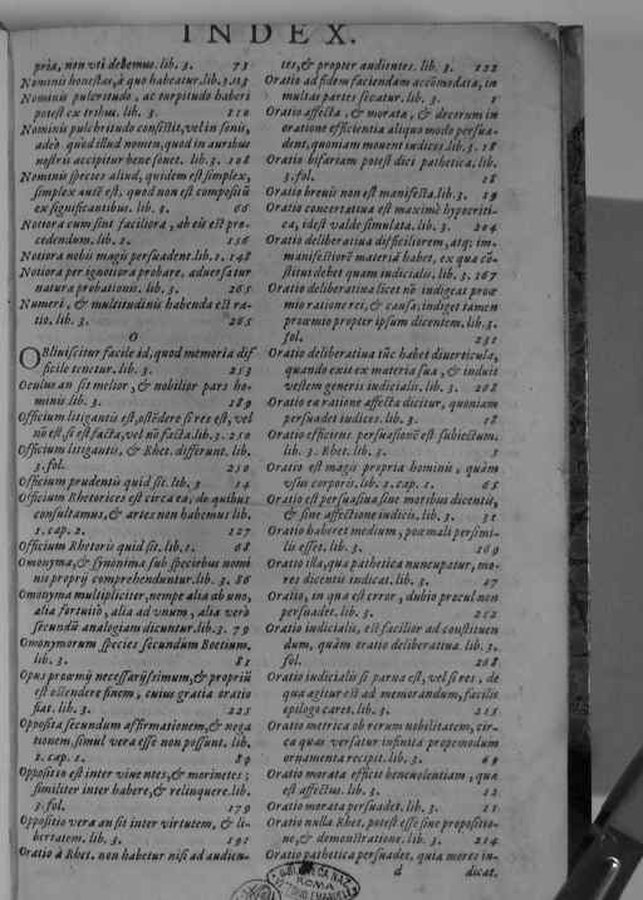 INDEX.
pria, non vti debemus. lib. 3. 73
Nominis honestas, à quo habeatur. lib. 3. 113
Nominis pulcritudo, ac turpitudo haberi
potest ex tribus. lib. 3. 110
Nominis pulchritudo consistit, vel in sonis,
adeò quod illud nomen, quod in auribus
nostris accipitur bene sonet. lib. 3. 108
Nominis species aliud, quidem est simplex,
simplex autē est, quod non est compositū
ex significantibus. lib. 3. 66
Notiora cum sint faciliora, ab eis est pro-
cedendum. lib. 2. 156
Notiora nobis magis persuadent. lib. 1. 148
Notiora per ignotiora probare, aduersatur
naturæ probationis. lib. 3. 265
Numeri, & multitudinis habenda est ra-
tio. lib. 3. 265
O
OBliuiscitur facile id, quod memoria dif
ficile tenetur. lib. 3. 253
Oculus an sit melior, & nobilior pars ho-
minis lib. 3. 189
Officium litigantis est, ostēdere si res est, vel
nō est, si est facta, vel nō facta. lib. 3. 250
Officium litigantis, & Rhet. differunt. lib.
3. fol. 250
Officium prudentis quid sit. lib. 3 14
Officium Rhetorices est circa ea, de quibus
consultamus, & artes non habemus lib.
1. cap. 2. 127
Officium Rhetoris quid sit. lib. 1. 68
Omonyma, & synonima sub speciebus nomi
nis proprij comprehenduntur. lib. 3. 86
Omonyma multipliciter, nempe alia ab uno,
alia fortuitò, alia ad vnum, alia verò
secundū analogiam dicuntur. lib. 3. 79
Omonymorum species secundùm Boetium.
lib. 3. 81
Opus proœmij necessarijssimum, & propriū
est ostendere finem, cuius gratia oratio
fiat. lib. 3. 225
Opposita secundum affirmationem, & nega
tionem, simul vera esse non possunt. lib.
1. cap. 1. 89
Oppositio est inter viuentes, & morientes;
similiter inter habere, & relinquere. lib.
3. fol. 179
Oppositio vera an sit inter virtutem, & li-
bertatem. lib. 3. 191
Oratio à Rhet. non habetur nisi ad audien-
tes, & propter audientes. lib. 3. 222
Oratio ad fidem faciendam accōmodata, in
multas partes secatur. lib. 3. 1
Oratio affecta, & morata, & decorum in
oratione efficientia aliquo modo persua-
dent, quoniam mouent iudices. lib. 3. 18
Oratio bifariam potest dici pathetica. lib.
3. fol. 18
Oratio breuis non est manifesta. lib. 3. 19
Oratio concertatiua est maximè hypocriti-
ca, idest valde simulata. lib. 3. 204
Oratio deliberatiua difficiliorem, atq; im-
manifestiorē materiā habet, ex qua cō-
stitui debet quam iudicialis. lib. 3. 267
Oratio deliberatiua licet nō indigeat prœ
mio ratione rei, & causa; indiget tamen
proœmio propter ipsum dicentem. lib. 3.
fol. 231
Oratio deliberatiua tūc habet diuerticula,
quando exit ex materia sua, & induit
vestem generis iudicialis. lib. 3. 268
Oratio ea ratione affecta dicitur, quoniam
persuadet iudices. lib. 3. 18
Oratio efficiens persuasionē est subiectum.
lib. 3. Rhet. lib. 3. 3
Oratio est magis propria hominis, quàm
vsus corporis. lib. 1. cap. 1. 65
Oratio est persuasiua sine moribus dicentis,
& sine affectione iudicis. lib. 3. 31
Oratio haberet medium, poemati persimi-
lis esset. lib. 3. 169
Oratio illa, qua pathetica nuncupatur, mo-
res dicentis indicat. lib. 3. 47
Oratio, in qua est error, dubio procul non
persuadet. lib. 3. 252
Oratio iudicialis, est facilior ad constituen
dum, quàm oratio deliberatiua. lib. 3.
fol. 268
Oratio iudicialis si parua est, vel si res, de
qua agitur est ad memorandum, facilis
epilogo caret. lib. 3. 215
Oratio metrica ob rerum nobilitatem, cir-
ca quas versatur infinita propemodum
ornamenta recipit. lib. 3. 69
Oratio morata efficit beneuolentiam, qua
est affectus. lib. 3. 12
Oratio morata persuadet. lib. 3. 21
Oratio nulla Rhet. potest esse sine propositio-
ne, & demonstratione. lib. 3. 214
Oratio pathetica persuadet, quia mores in-
d dicat.
ROMA